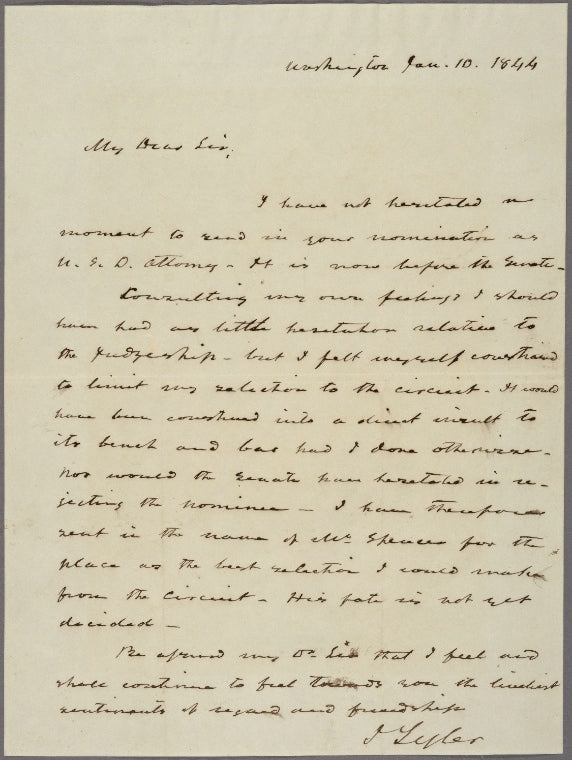 Washington Jan. 10. 1844
My Dear Sir,
I have not hesitated a
moment to send in your nomination as
U. S. D. Attorney - It is now before the Senate -
Consulting my own feelings I should
have had as little hesitation relative to
the Judgeship - but I felt myself constrained
to limit my selection to the circuit - It would
have been construed into a direct insult to
its bench and bar had I done otherwise -
Nor would the Senate have hesitated in re-
jecting the nominee - I have therefore
sent in the name of Mr Spence for the
place as the best selection I could make
from the circuit - His fate is not yet
decided -
Be assured my Dr Sir that I feel and
shall continue to feel towards you the liveliest
sentiments of regard and friendship
J Tyler